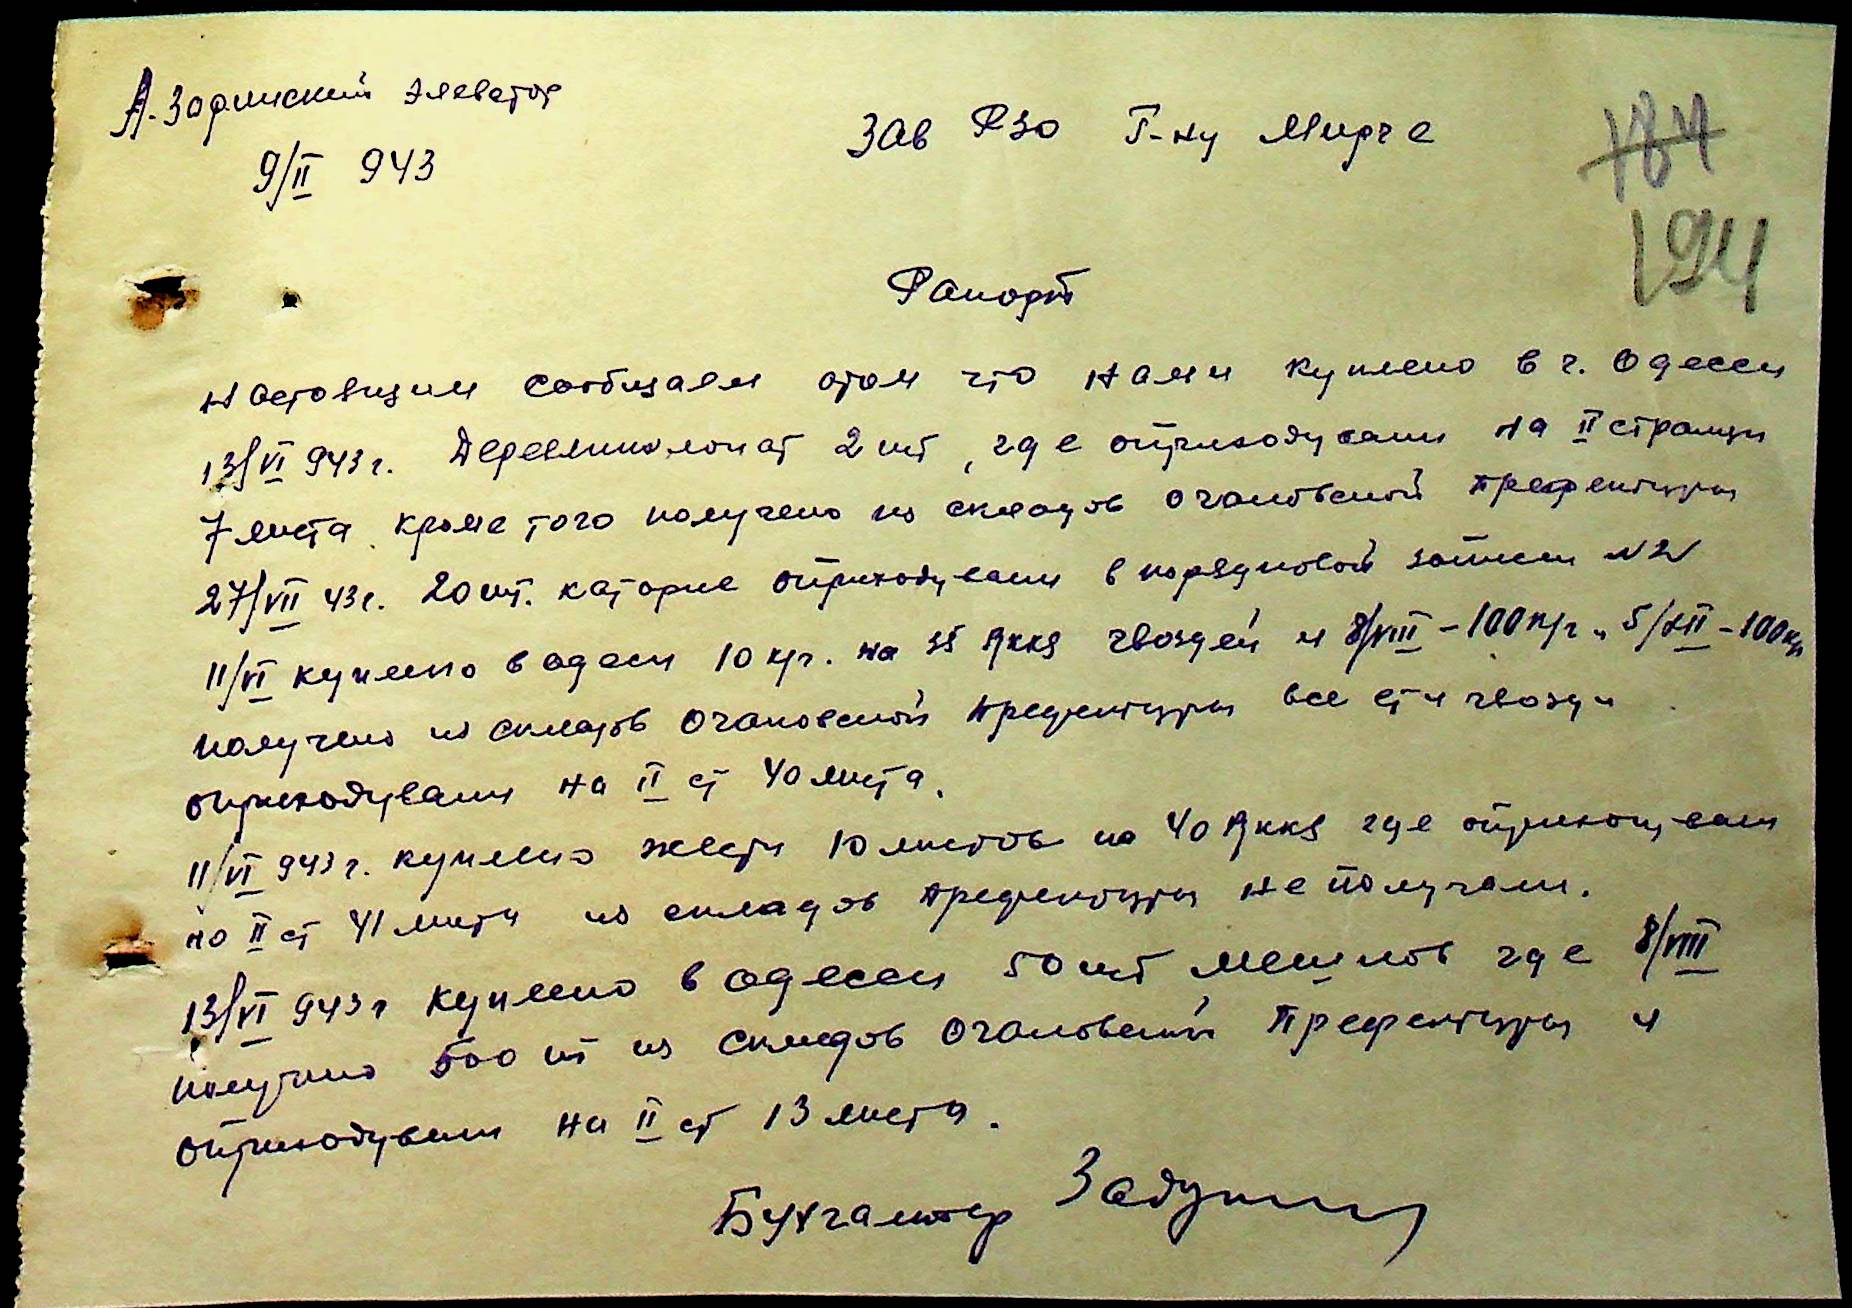 А. Зоринский элеватор
9/II 943
Зав РЗО Г-ну Мирче
184
194
Рапорт
Настовищим сообщаем отом что нами куплено в г. Одесси
13/VI 943 г. Дерев лопат 2 шт, где оприходували на II страници
7 листа кроме того получено из складов Очаковской префектуры
27/VII 43 г. 20 шт. каторые оприходували в порядковой записи N 2
11/VI куплено в одеси 10 к/г. на гвоздей и 8/VIII - 100 к/г и 5/XII - 100 к/г
получено из складов Очаковской префектуры все эти гвозди
оприходували на II ст 40 листа.
11/VI 943 г. куплено жести 10 листов по 40 где оприходували
на II ст 41 листа из складов префектуры не получали.
13/VI 943 г куплено в одессеи 50 шт мешков где 8/VIII
получено 500 шт из складов Очаковской Префектуры и
оприходували на II ст 13 листа.
Бухгалтер